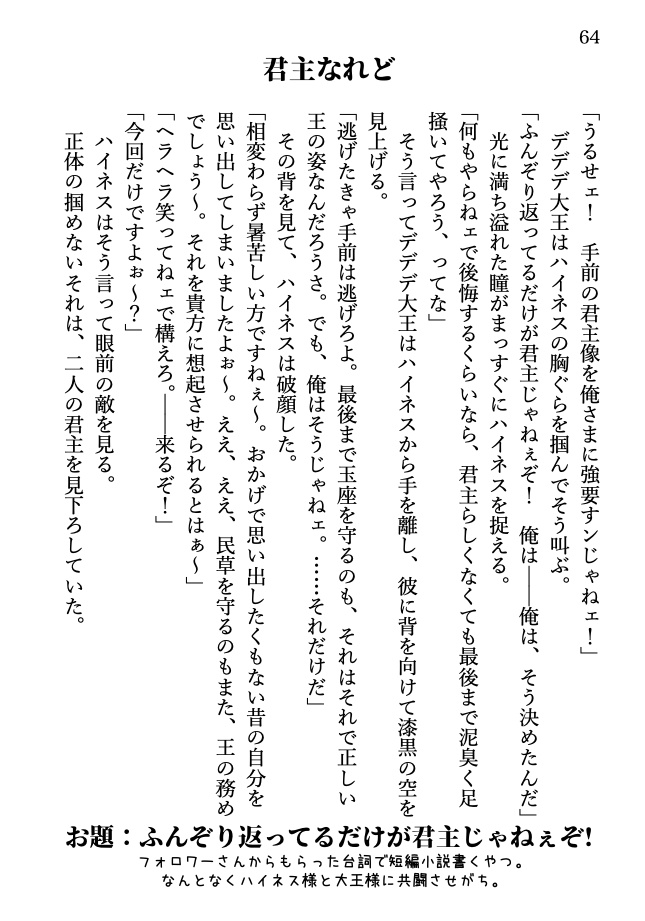 64
君主なれど
「うるせェ！　手前の君主像を俺さまに強要すンじゃねェ！」
デデデ大王はハイネスの胸ぐらを掴んでそう叫ぶ。
「ふんぞり返ってるだけが君主じゃねぇぞ！　俺は――俺は、そう決めたんだ」
光に満ち溢れた瞳がまっすぐにハイネスを捉える。
「何もやらねェで後悔するくらいなら、君主らしくなくても最後まで泥臭く足
掻いてやろう、ってな」
そう言ってデデデ大王はハイネスから手を離し、彼に背を向けて漆黒の空を
見上げる。
「逃げたきゃ手前は逃げろよ。最後まで玉座を守るのも、それはそれで正しい
王の姿なんだろうさ。でも、俺はそうじゃねェ。……それだけだ」
その背を見て、ハイネスは破顔した。
「相変わらず暑苦しい方ですねぇ～。おかげで思い出したくもない昔の自分を
思い出してしまいましたよぉ～。ええ、ええ、民草を守るのもまた、王の務め
でしょう～。それを貴方に想起させられるとはぁ～」
「ヘラヘラ笑ってねェで構えろ。――来るぞ！」
「今回だけですよぉ～？」
ハイネスはそう言って眼前の敵を見る。
正体の掴めないそれは、二人の君主を見下ろしていた。
お題：ふんぞり返ってるだけが君主じゃねぇぞ!
フォロワーさんからもらった台詞で短編小説書くやつ。
なんとなくハイネス様と大王様に共闘させがち。